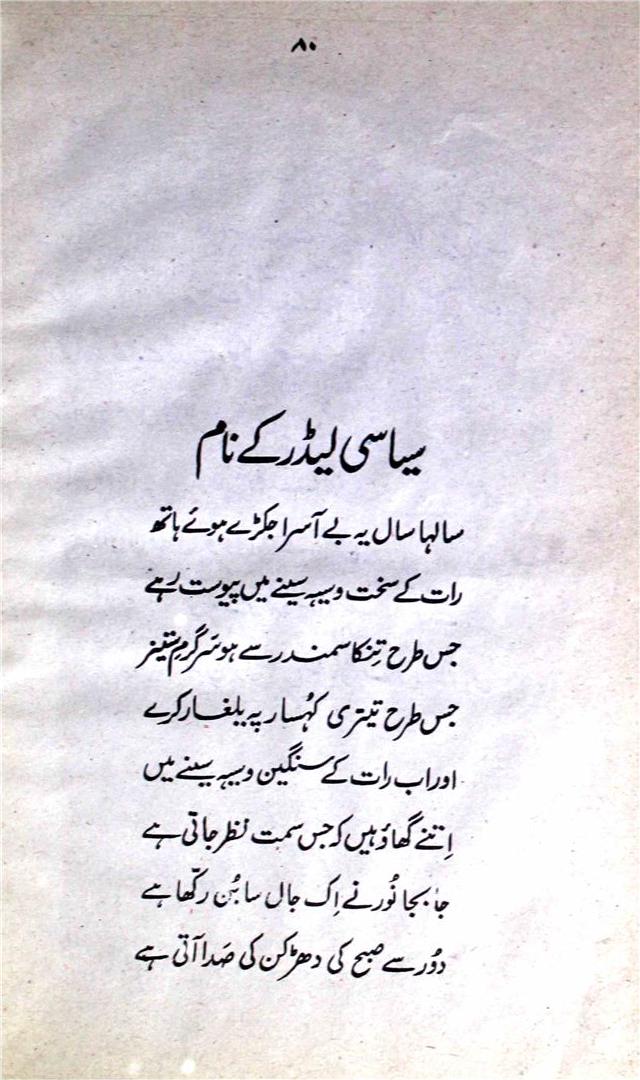 ۸۰
سیاسی لیڈر کے نام
سالہا سال یہ بے آسرا جکڑے ہوئے ہاتھ
رات کے سخت و سیہ سینے میں پیوست رہے
جس طرح تِنکا سمندر سے ہو سَرگرمِ ستیز
جس طرح تیتری کہُسار پہ یلغار کرے
اور اب رات کے سنگین و سیہ سینے میں
اِتنے گھاؤ ہیں کہ جس سمت نظر جاتی ہے
جابجا نُور نے اِک جال سا بُن رکّھا ہے
دُور سے صبح کی دھڑکن کی صَدا آتی ہے